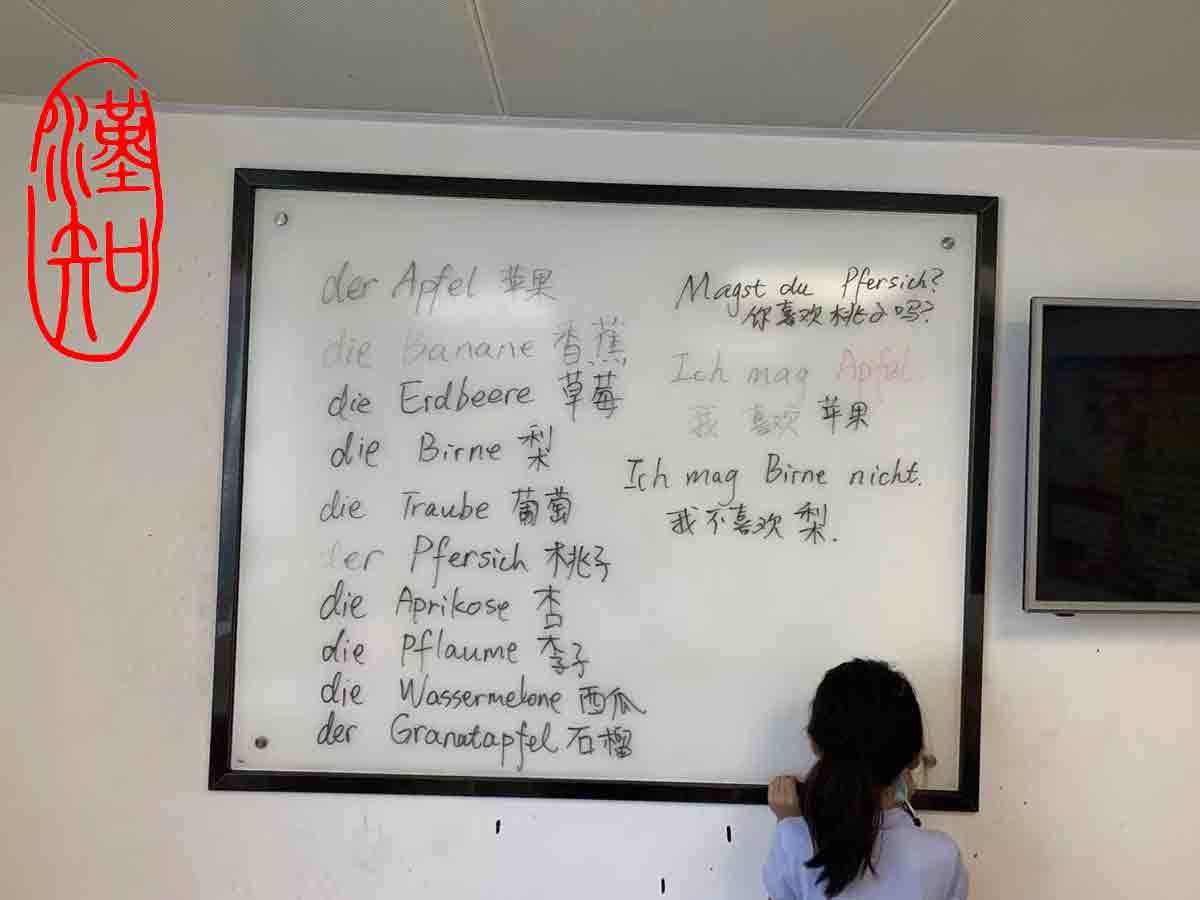 漢知
der Apfel 苹果
die Banane 香蕉
die Erdbeere 草莓
die Birne 梨
die Traube 葡萄
der Pfersich 桃子
die Aprikose 杏
die Pflaume 李子
die Wassermelone 西瓜
der Granatapfel 石榴
Magst du Pfersich?
你喜欢桃子吗?
Ich mag Apfel.
我 喜欢 苹果
Ich mag Birne nicht.
我不喜欢 梨.